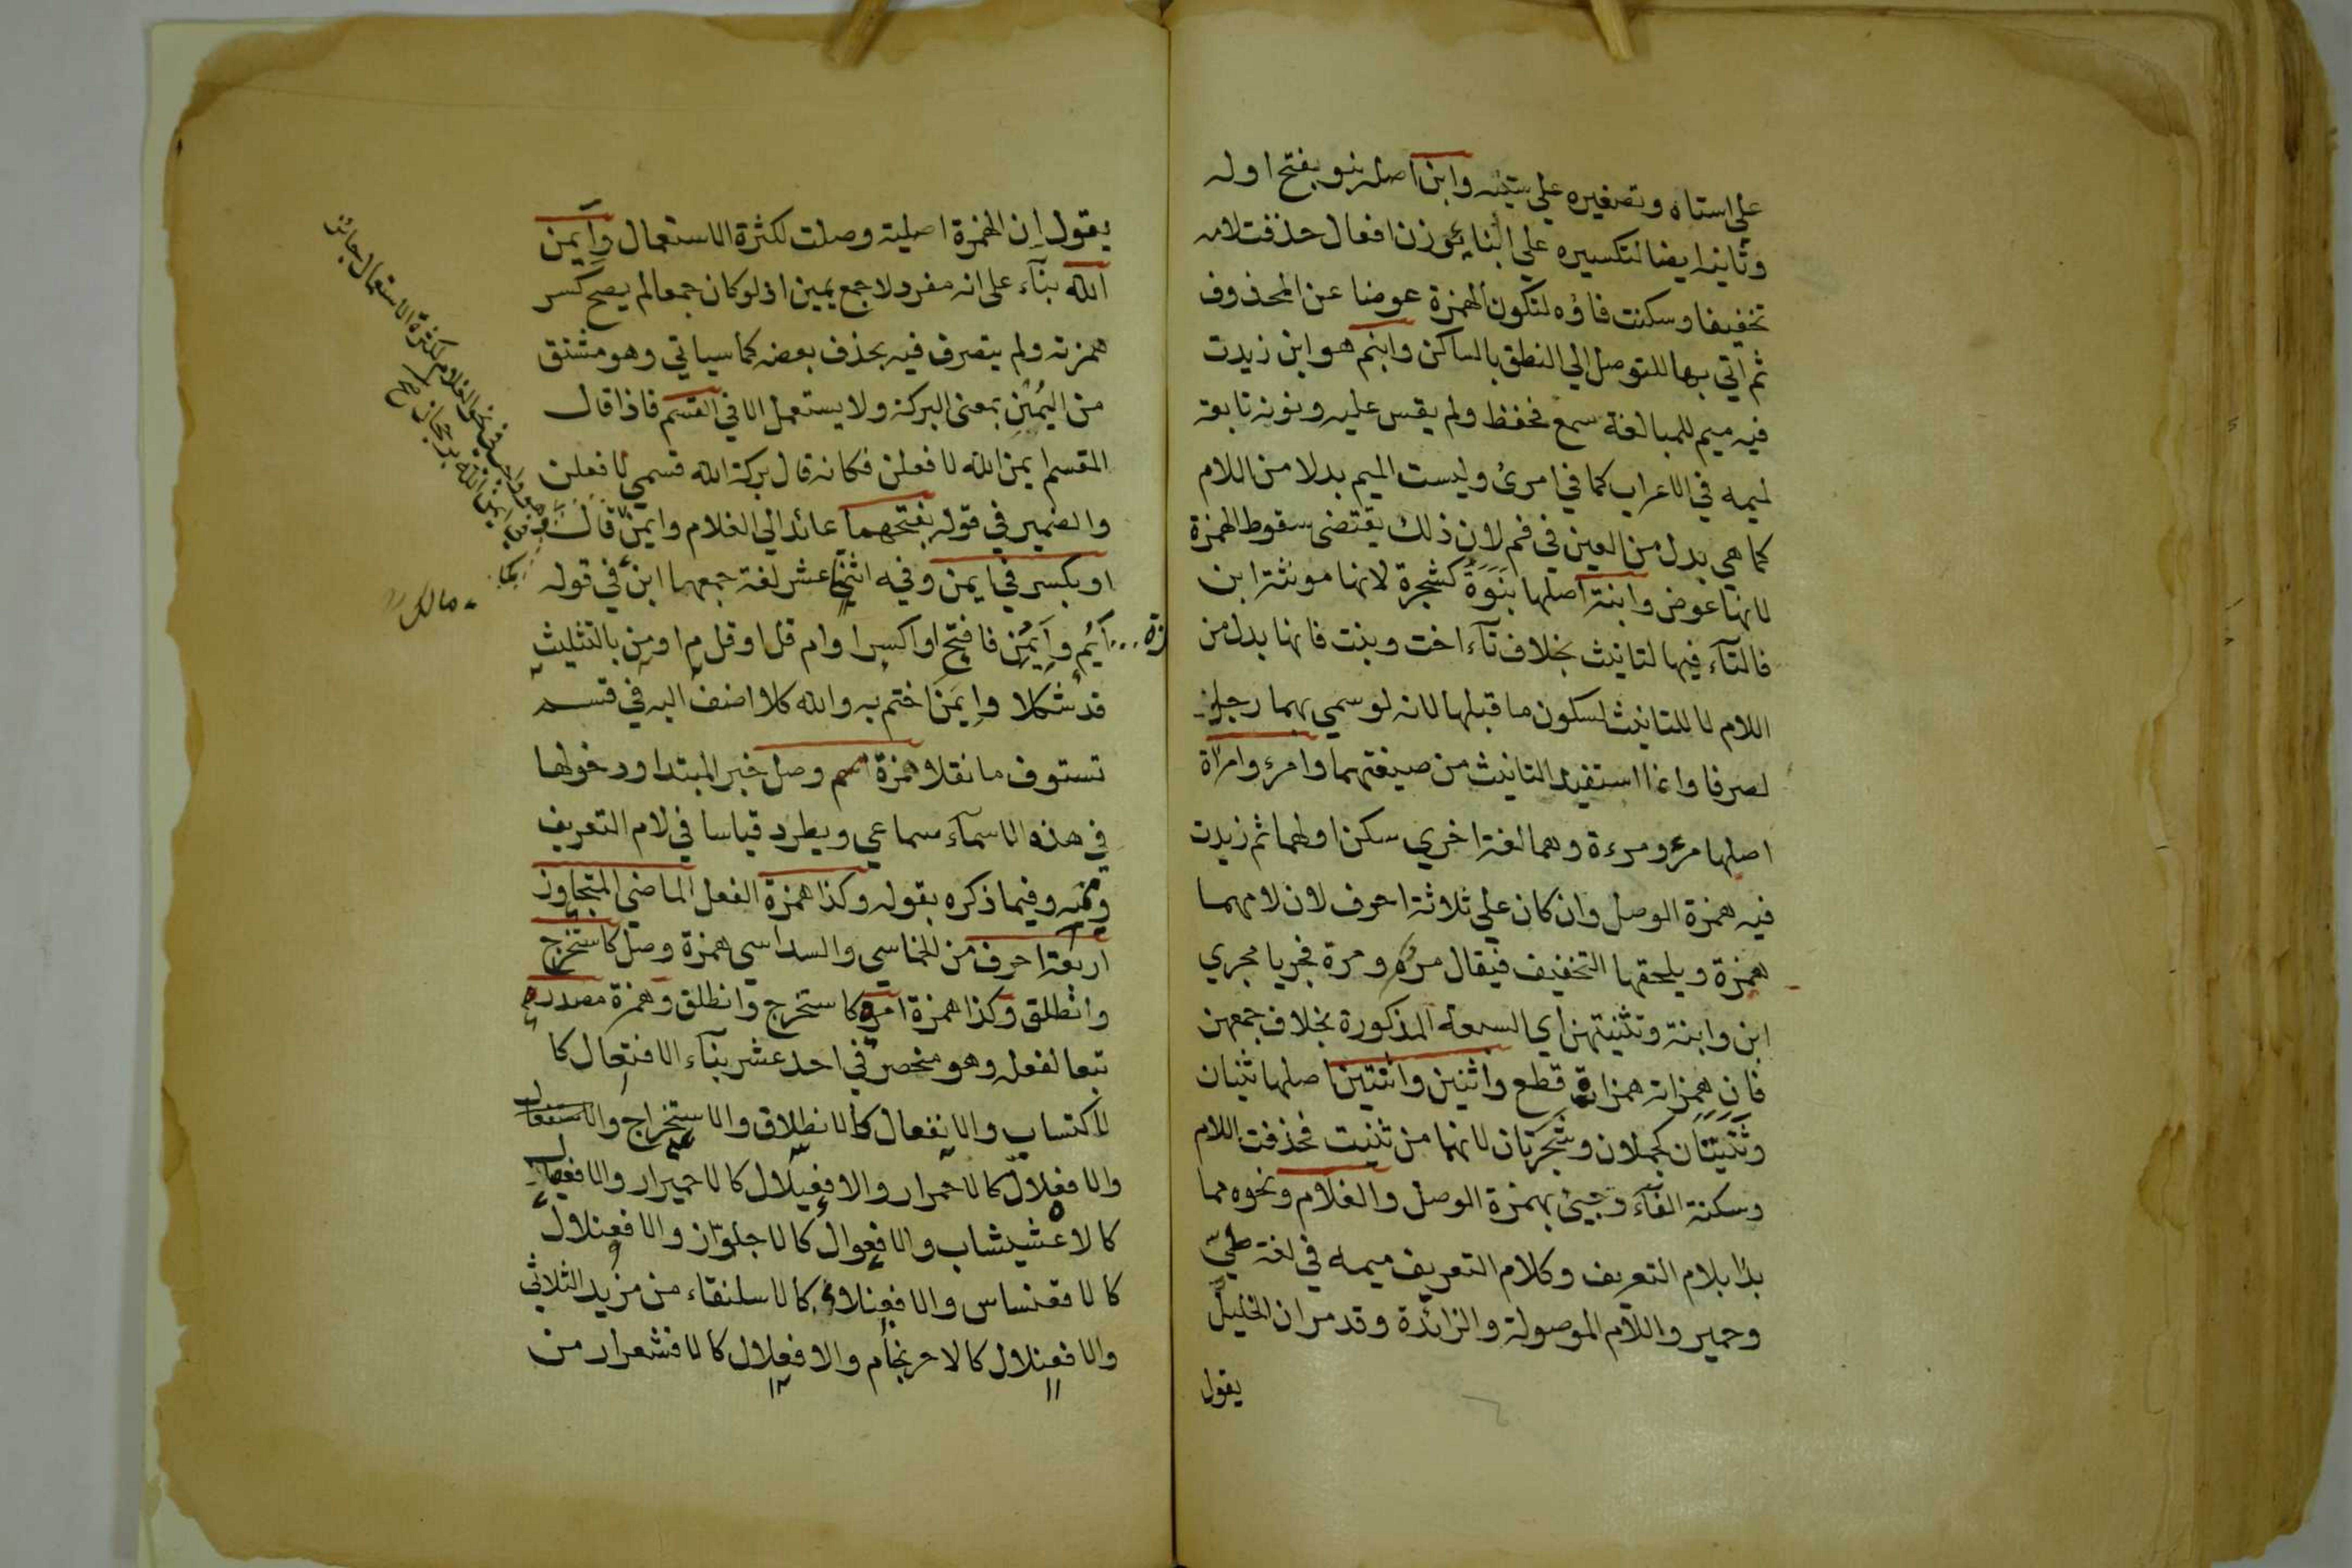 على استاه وتصغيره على ستيه وابن اصله بنو بفتح اوله
وثانيه ايضا لتكسيره على ابناء بوزن افعال حذفت لامه
تخفيفا وسكنت فاؤه لتكون الهمزة عوضا عن المحذوف
ثم اتي بها للتوصل الي النطق بالساكن وابنم هو ابن زيدت
فيه ميم للمبالغة سمع فحفظ ولم يقس عليه ونونه تابعة
لميمه في الاعراب كما في امرئ وليست الميم بدلا من اللام
كما هي بدل من العين في فم لان ذلك يقتضى سقوط الهمزة
لانها عوض وابنة اصلها بَنَوَةٌ كشجرة لانها مونثة ابن
فالتآء فيها لتانيث بخلاف تآء اخت وبنت فانها بدل من
اللام لا للتانيث لسكون ما قبلها لانه لو سمي بهما رجل
لصرفا وانما استفيد التانيث من صيغتهما وامرء وامراة
اصلها مرء ومرءة وهما لغة اخري سكن اولهما ثم زيدت
فيه همزة الوصل وان كان علي ثلاثة احرف لان لامهما
همزة ويلحقها التخفيف فيقال مر ومرة فجريا مجري
ابن وابنة وتثنيتهن اي السبعة المذكورة بخلاف جمعهن
فان همزاته همزات قطع واثنين واثنتين اصلها ثنيان
وثَنَيَتَان كجملان وشَجَرَتان لانهما من ثنيت فحذفت اللام
وسكنة الفآء وجيئ بهمزة الوصل والغلام ونحوه مما
بدا بلام التعريف وكلام التعريف ميمه في لغة طي
وحمير واللام الموصولة والزائدة وقد مر ان الخليل
يقول
يقول ان الهمزة اصلية وصلت لكثرة الاستعمال وايمن
الله بنآء على انه مفرد لا جمع يمين اذ لو كان جمعا لم يصح كسر
همزته ولم يتصرف فيه بحذف بعضه كما سياتي وهو مشتق
من اليُمْنِ بمعنى البركة ولا يستعمل الا في القسم فاذا قال
المقسم ايمن الله لافعلن فكانه قال بركة الله قسمي لافعلن
والضمير في قوله بفتحهما عائد الي الغلام وايمن قال
او بكسر في ايمن وفيه اثني عشر لغة جمعها ابن في قوله
مالك
ايم وايمن فافتح او اكسر او ام قل او قل م او من بالتثليث
قد شكلا وايمن اختم به والله كلا اضف اليه في قسم
تستوف ما نقلا همزة اسم وصل خبر المبتدا ودخولها
في هذه الاسمآء سماعي ويطرد قياسا في لام التعريف
وميمه وفيما ذكره بقوله وكذا همزة الفعل الماضي المتجاوز
اربعة احرف من الخماسي والسداسي همزة وصل كاستخرج
وانطلق وكذا همزة امره كاستخرج وانطلق وهمزة مصدره
تبعا لفعله وهو منحصر في احد عشر بنآء الافتعال كا
لاكتساب والانفعال كالانطلاق والاستخراج والاستفعال
والافعلال كالاحمرار والافعيلال كالاحميرار والافعيعال
كالاعشيشاب والافعوال كالاجلواز والافعنلال
كالاقعنساس والافعنلاء كالاسلنقاء من مزيد الثلاثي
والافعنلال كالاحرنجام والافعلال كالاقشعرار من